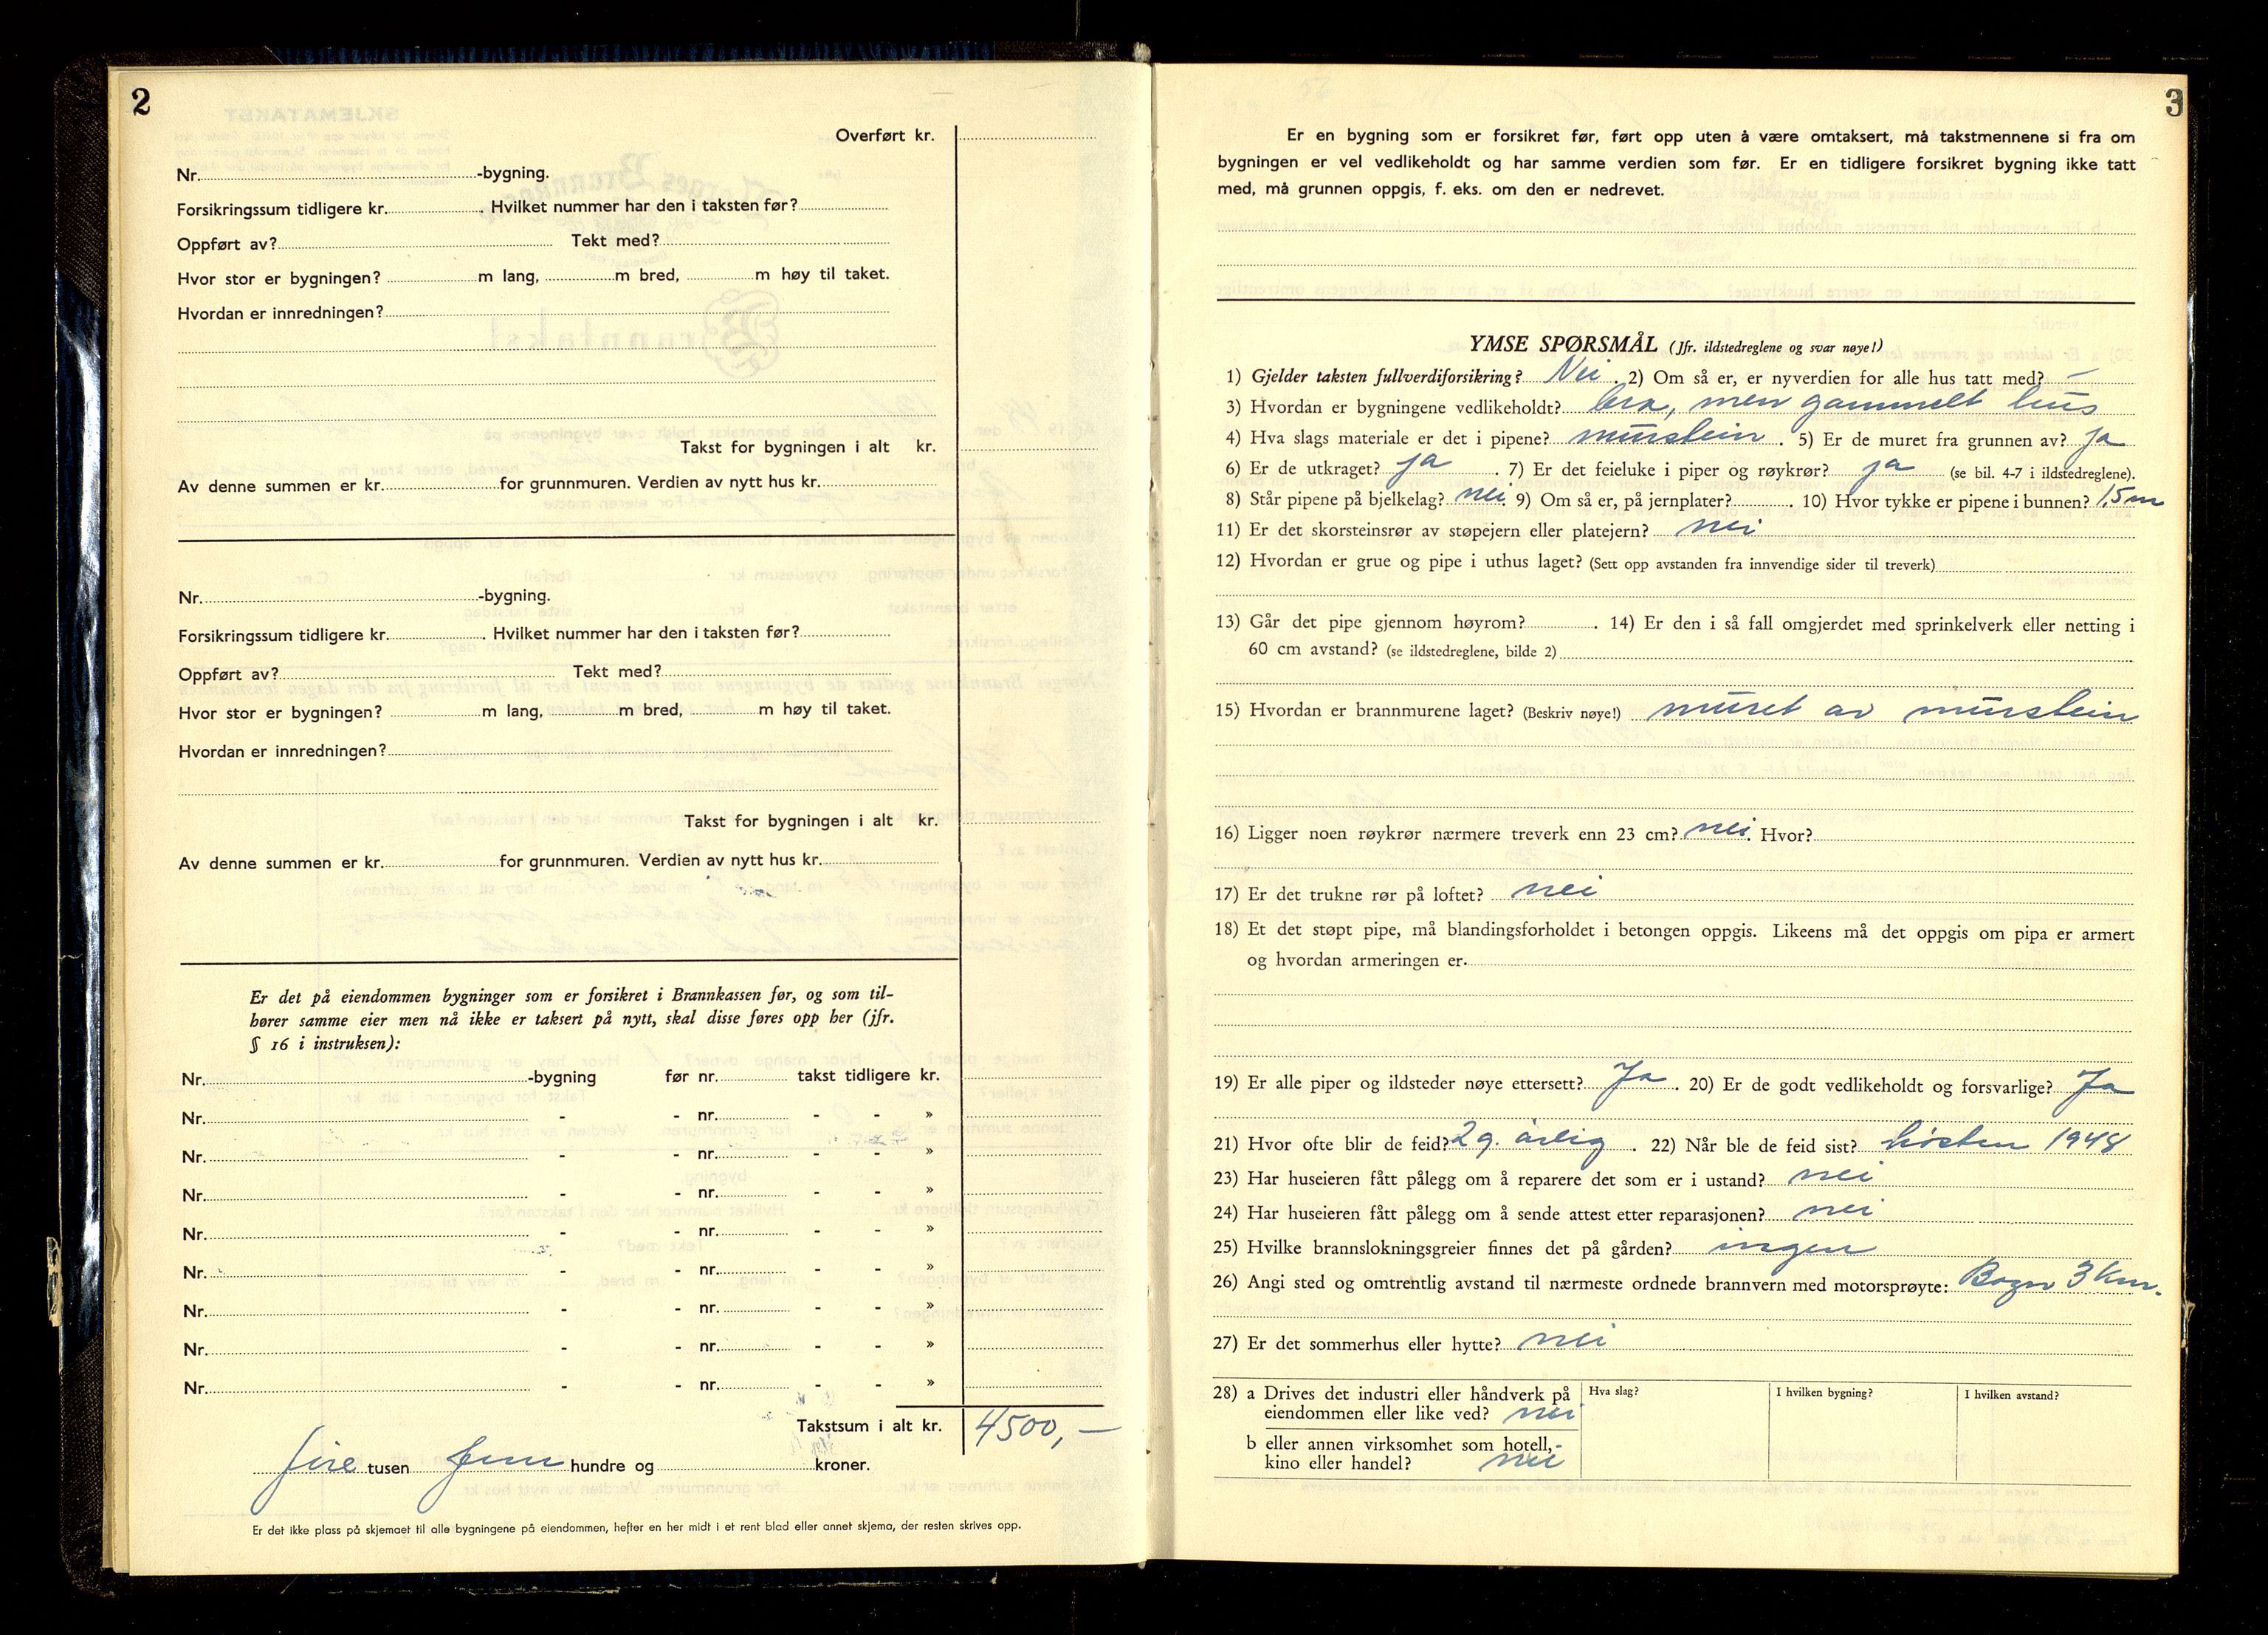 2
Overført kr.
Nr. -bygning.
Forsikringssum tidligere kr. . Hvilket nummer har den i taksten før?
Oppført av? Tekt med?
Hvor stor er bygningen? m lang, m bred, m høy til taket.
Hvordan er innredningen?
Takst for bygningen i alt kr.
Av denne summen er kr. for grunnmuren. Verdien av nytt hus kr.
Nr. -bygning.
Forsikringssum tidligere kr. . Hvilket nummer har den i taksten før?
Oppført av? Tekt med?
Hvor stor er bygningen? m lang, m bred, m høy til taket.
Hvordan er innredningen?
Takst for bygningen i alt kr.
Av denne summen er kr. for grunnmuren. Verdien av nytt hus kr.
Er det på eiendommen bygninger som er forsikret i Brannkassen før, og som til-
hører samme eier men nå ikke er taksert på nytt, skal disse føres opp her (jfr.
§ 16 i instruksen):
Nr. -bygning før nr. takst tidligere kr.
Nr. - - nr. - - »
Nr. - - nr. - - »
Nr. - - nr. - - »
Nr. - - nr. - - »
Nr. - - nr. - - »
Nr. - - nr. - - »
Nr. - - nr. - - »
Nr. - - nr. - - »
Takstsum i alt kr. 4500,—
fire tusen fem hundre og kroner.
Er det ikke plass på skjemaet til alle bygningene på eiendommen, hefter en her midt i et rent blad eller annet skjema, der resten skrives opp.
3
Er en bygning som er forsikret før, ført opp uten å være omtaksert, må takstmennene si fra om
bygningen er vel vedlikeholdt og har samme verdien som før. Er en tidligere forsikret bygning ikke tatt
med, må grunnen oppgis, f. eks. om den er nedrevet.
YMSE SPØRSMÅL (Jfr. ildstedreglene og svar nøye!)
1) Gjelder taksten fullverdiforsikring? Nei . 2) Om så er, er nyverdien for alle hus tatt med? —
3) Hvordan er bygningene vedlikeholdt? bra, men gammelt hus
4) Hva slags materiale er det i pipene? murstein . 5) Er de muret fra grunnen av? ja
6) Er de utkraget? ja . 7) Er det feieluke i piper og røykrør? ja (se bil. 4-7 i ildstedreglene).
8) Står pipene på bjelkelag? nei. 9) Om så er, på jernplater? . 10) Hvor tykke er pipene i bunnen? 1,5 m
11) Er det skorsteinsrør av støpejern eller platejern? nei
12) Hvordan er grue og pipe i uthus laget? (Sett opp avstanden fra innvendige sider til treverk)
13) Går det pipe gjennom høyrom? . 14) Er den i så fall omgjerdet med sprinkelverk eller netting i
60 cm avstand? (se ildstedreglene, bilde 2)
15) Hvordan er brannmurene laget? (Beskriv nøye!) muret av murstein
16) Ligger noen røykrør nærmere treverk enn 23 cm? nei. Hvor?
17) Er det trukne rør på loftet? nei
18) Et det støpt pipe, må blandingsforholdet i betongen oppgis. Likeens må det oppgis om pipa er armert
og hvordan armeringen er.
19) Er alle piper og ildsteder nøye ettersett? Ja . 20) Er de godt vedlikeholdt og forsvarlige? Ja
21) Hvor ofte blir de feid? 2 g. årlig . 22) Når ble de feid sist? høsten 1948
23) Har huseieren fått pålegg om å reparere det som er i ustand? nei
24) Har huseieren fått pålegg om å sende attest etter reparasjonen? nei
25) Hvilke brannslokningsgreier finnes det på gården? ingen
26) Angi sted og omtrentlig avstand til nærmeste ordnede brannvern med motorsprøyte: Bogn 3 km.
27) Er det sommerhus eller hytte? nei
28) a Drives det industri eller håndverk på Hva slag? I hvilken bygning? I hvilken avstand?
eiendommen eller like ved? nei
b eller annen virksomhet som hotell,
kino eller handel? nei